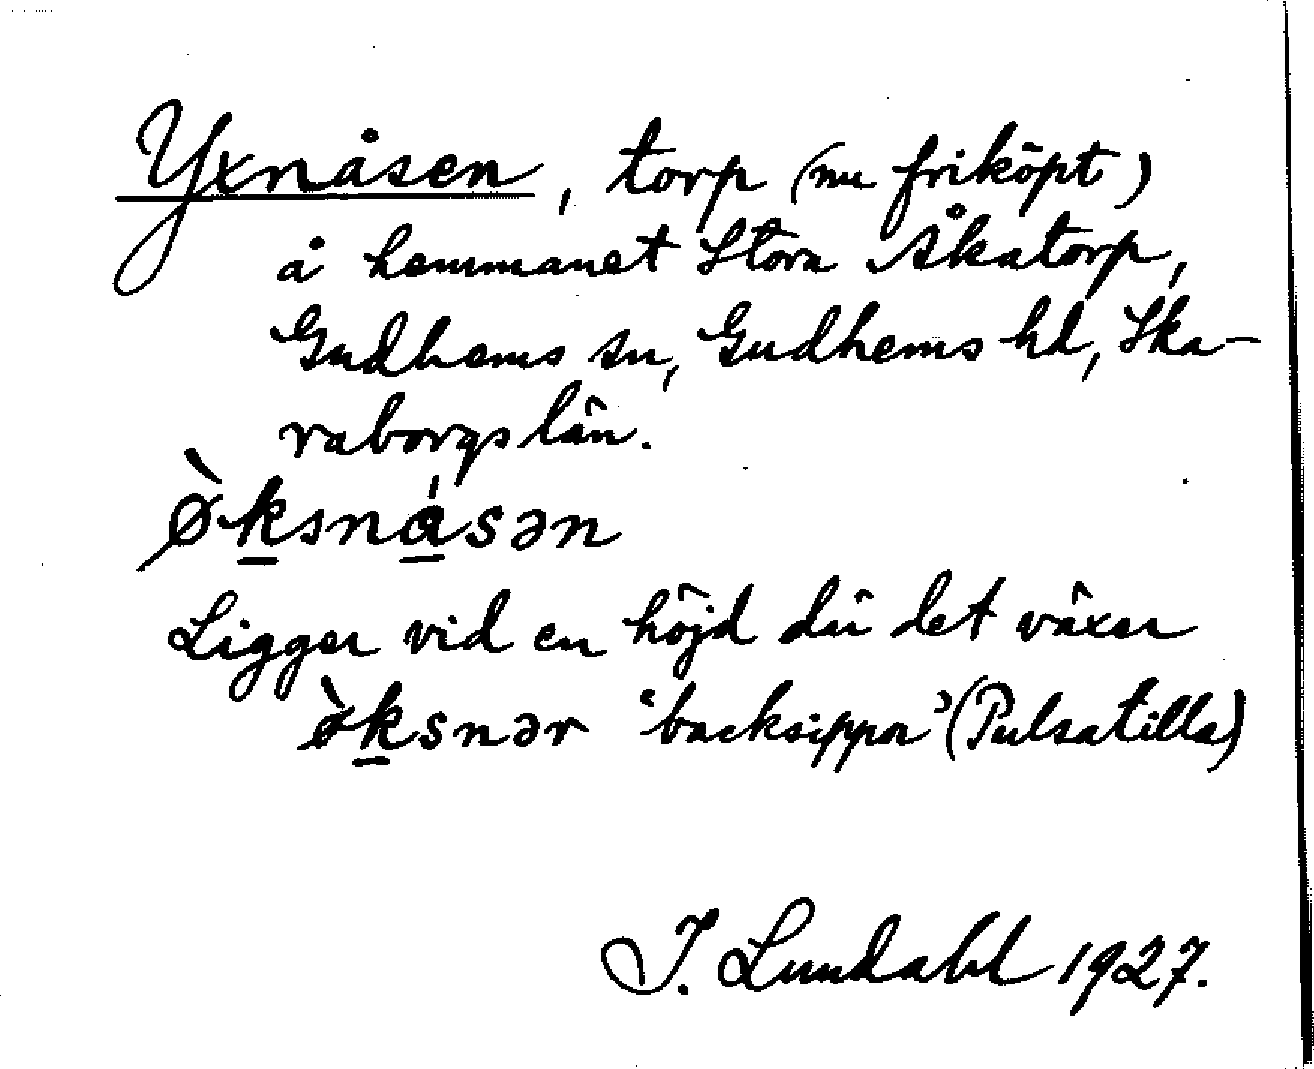 Yxnåsen, torp (nu friköpt)
å hemmanet Stora Åkatorp,
Gudhems sn, Gudhems hd, Ska-
raborgs län.
ø̀ksnásən
Ligger vid en höjd där det växer
ø̀ksnər ‘backsippor’ (Pulsatilla)
I. Lundahl 1927.